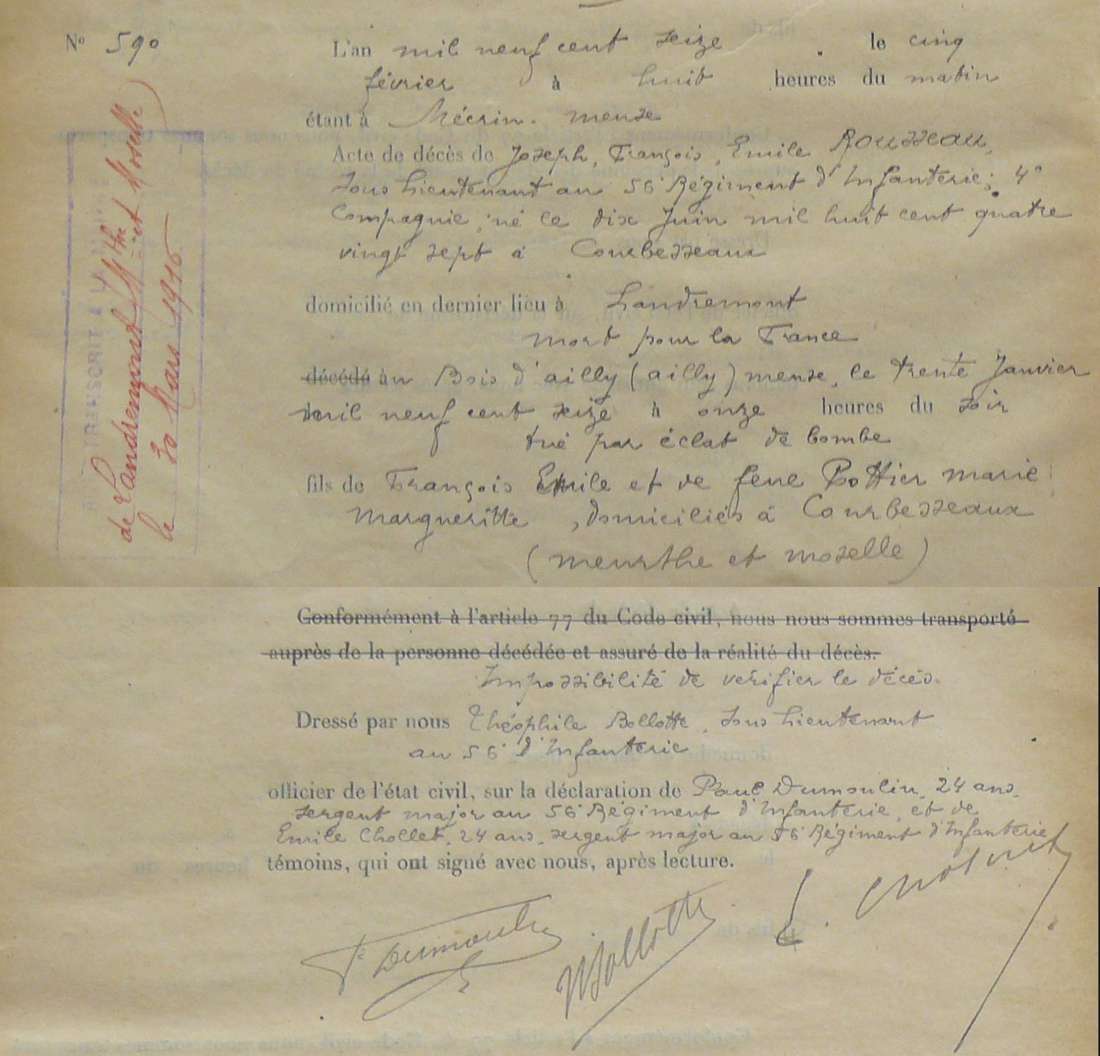 N° 590
L'an mil neuf cent seize . le cinq
février à huit heures du matin
étant à Mécrin. meuse
Acte de décès de Joseph, François, Emile Rousseau,
Sous Lieutenant au 56e Régiment d'Infanterie; 4e
Compagnie, né le dix Juin mil huit cent quatre
vingt sept à Courbesseaux
domicilié en dernier lieu à Landremont
mort pour la France
décédé au Bois d'ailly (ailly) meuse, le trente Janvier
mil neuf cent seize à onze heures du soir
tué par éclat de bombe
fils de François Emile et de feue Pottier marie
Margueritte, domiciliés à Courbesseaux
(meurthe et moselle)
TRANSCRIT A LA
de Landremont Mthe et Moselle)
le 30 Mars 1916
Conformément à l'article 77 du Code civil, nous nous sommes transporté
auprès de la personne décédée et assuré de la réalité du décès.
Impossibilité de vérifier le décès.
Dressé par nous Théophile Bollotte, Sous Lieutenant
au 56e d'Infanterie
officier de l'état civil, sur la déclaration de Paul Dumoulin, 24 ans,
sergent major au 56e Régiment d'Infanterie, et de
Emile Chollet, 24 ans, sergent major au 56e Régiment d'Infanterie
témoins, qui ont signé avec nous, après lecture.
P Dumoulin Bollotte E. Chollet